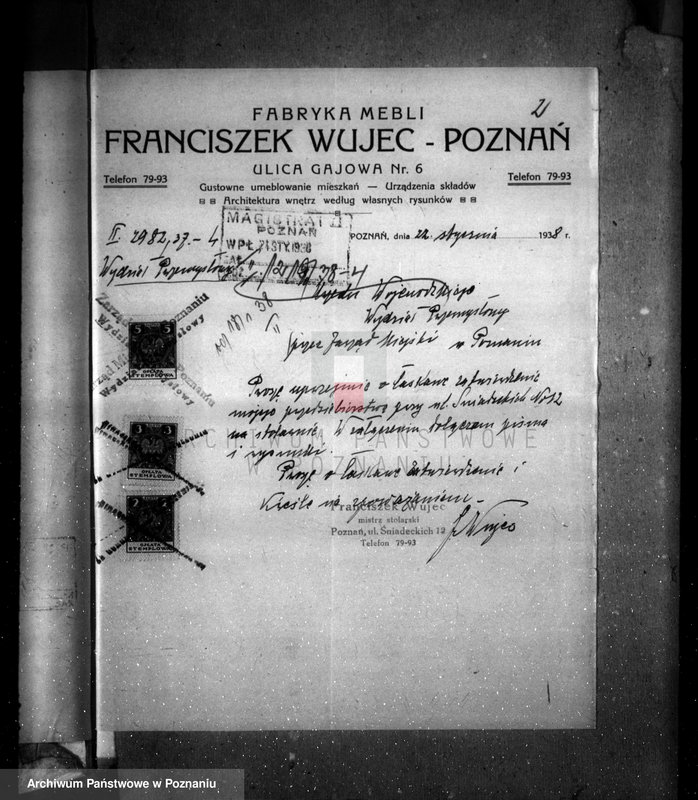 2
FABRYKA MEBLI
FRANCISZEK WUJEC - POZNAŃ
ULICA GAJOWA Nr. 6
Telefon 79-93
Telefon 79-93
Gustowne umeblowanie mieszkań — Urządzenia składów
Architektura wnętrz według własnych rysunków
MAGISTRAT
POZNAŃ
WPŁ. 21 STY. 1938
II. 2982/37.-4
POZNAŃ, dnia 22. stycznia 1938 r.
Wydział Przemysłowy
38-4
Wojewódzkiego
Wydział Przemysłowy
Zarząd Miejski w Poznaniu
Poznaniu
Proszę uprzejmie o łaskawe zatwierdzenie
mojego przedsiębiorstwa przy ul. Śniadeckich No 12
na stolarnię. W załączeniu dołączam pisma
i rysunki.
Proszę o łaskawe zatwierdzenie i
Kreślę na poważaniem
Franciszek Wujec
mistrz stolarski
Poznań, ul. Śniadeckich 12
Telefon 79-93
F. Wujec
5 5
OPŁATA
STEMPLOWA
OPŁATA
STEMPLOWA
OPŁATA
STEMPLOWA
ARCHIWUM PAŃSTWOWE
W POZNANIU
Archiwum Państwowe w Poznaniu